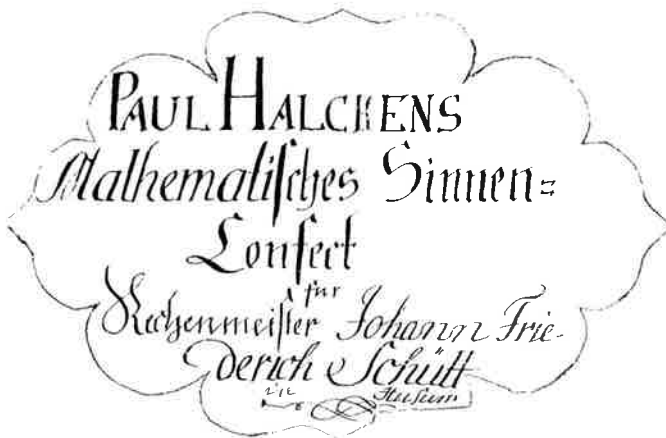 PAUL HALCKENS
Mathematisches Sinnen=
Confect
für
Rechenmeister Johann Frie-
derich Schütt
in
Husum